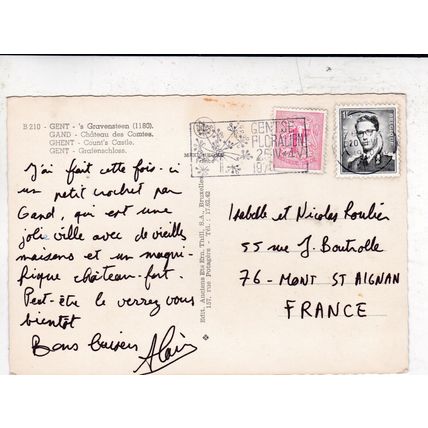 B 210 - GENT - 's Gravensteen (1180).
GAND - Château des Comtes.
GHENT - Count's Castle.
GENT - Grafenschloss.
J'ai fait cette fois-ci
un petit crochet par
Gand, qui est une
jolie ville avec de vieilles
maisons et un magni-
fique château-fort.
Peut-être le verrez vous
bientôt
Bons baisers
Alain
Edit. Anciens Ets Ern. Thill, S.A., Bruxelles
157, rue Potagère - Tél. : 17.62.42
GENTSE
FLORALIËN
Isabelle et Nicolas Roulier
55 rue J. Boutrolle
76 - MONT ST AIGNAN
FRANCE